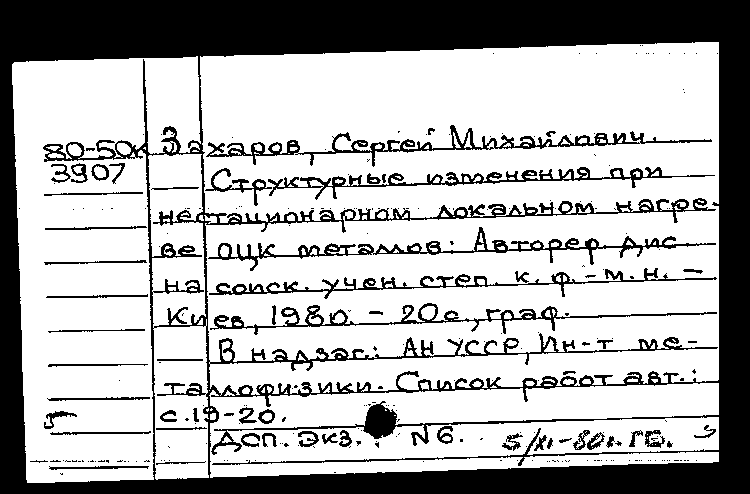 80-50к Захаров, Сергей Михайлович.
3907 Структурные изменения при
нестационарном локальном нагре-
ве ОЦК металлов: Автореф. дис.
на соиск. учен. степ. к. ф.-м. н. –
Киев, 1980. – 20 с., граф.
В надзаг.: АН УССР, Ин-т ме-
таллофизики. Список работ авт.:
с. 19-20.
Доп. экз. N 6. 5/XI-80г. ГБ.